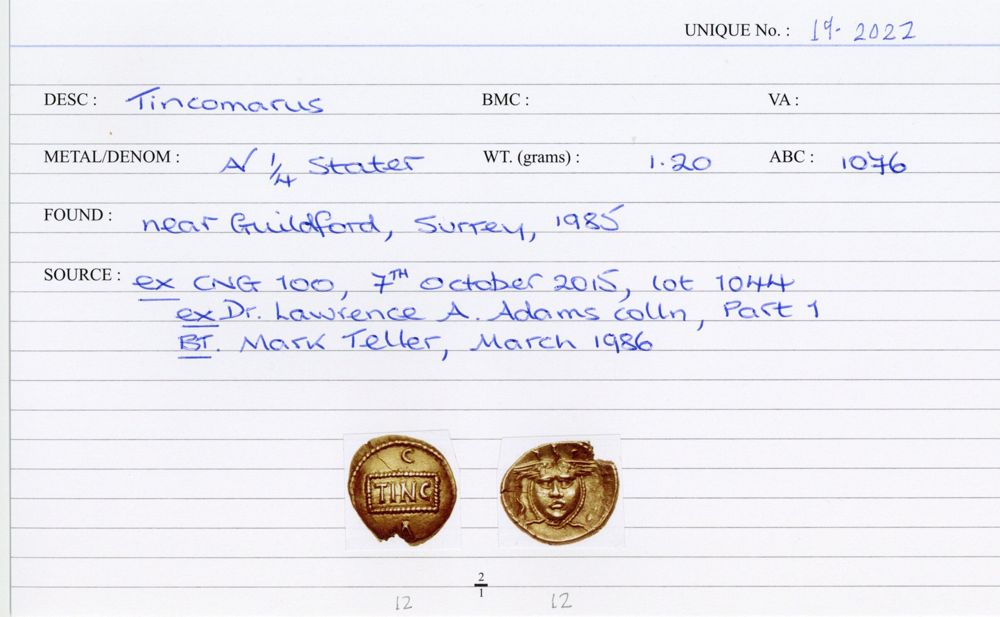 UNIQUE No. : 19-2022
DESC : Tincomarus BMC : VA :
METAL/DENOM : AV 1/4 Stater WT. (grams) : 1.20 ABC : 1076
FOUND : near Guildford, Surrey, 1985
SOURCE : ex CNG 100, 7TH October 2015, lot 1044
ex Dr. Lawrence A. Adams colln, Part 1
BT. Mark Teller, March 1986
C
TINC
A
2/1
12 12